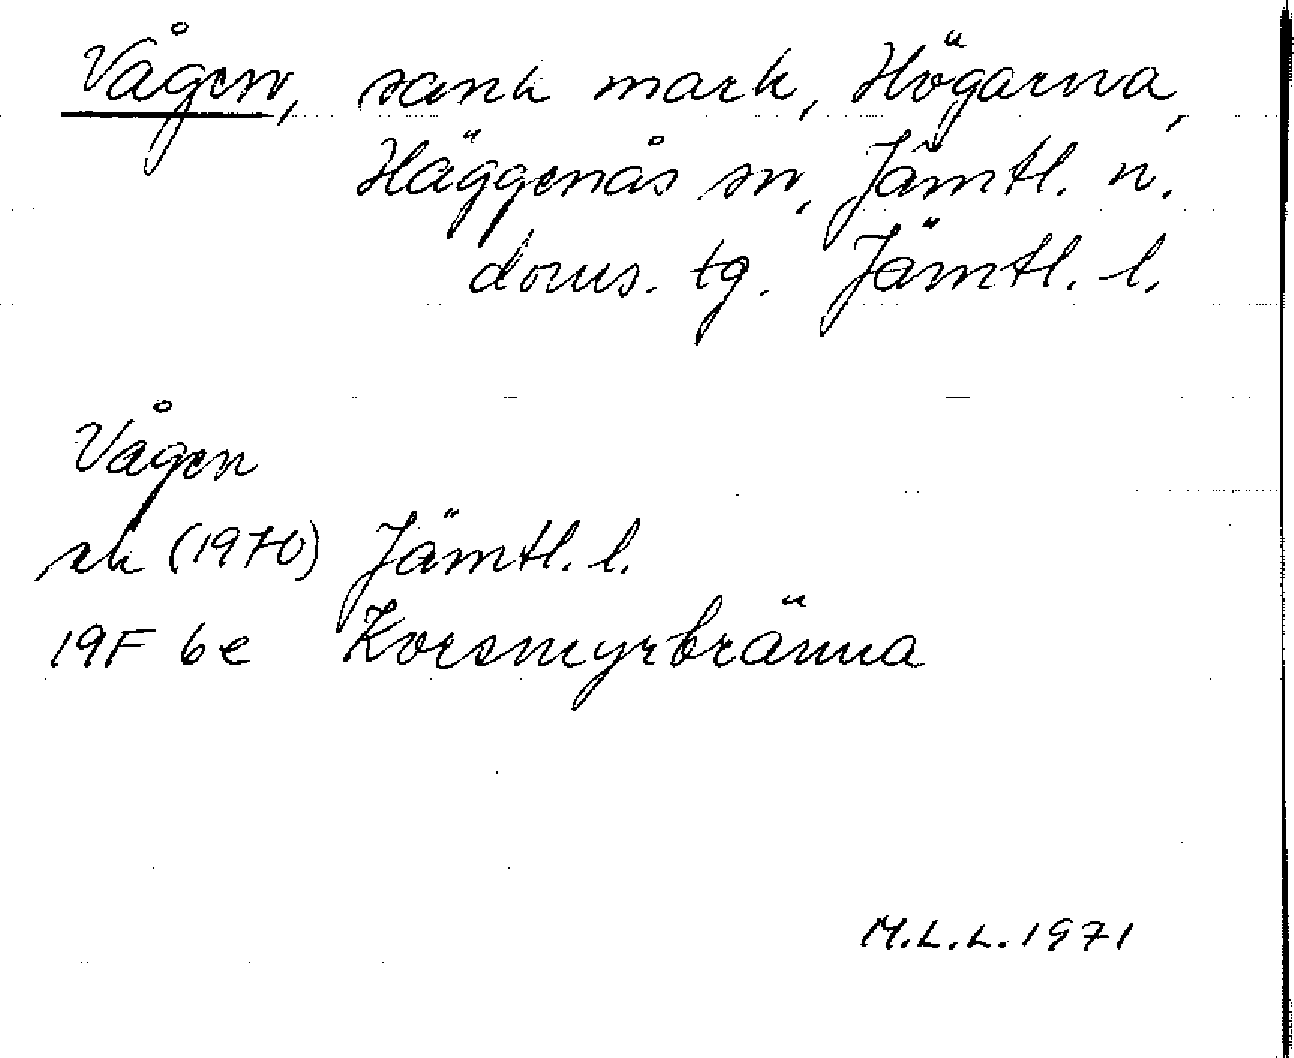 Vågen, sank mark, Högarna,
Häggenås sn, Jämtl. n.
doms. tg. Jämtl. l.
Vågen
ek (1970) Jämtl. l.
19F 6e Korsmyrbränna
M.L.L. 1971